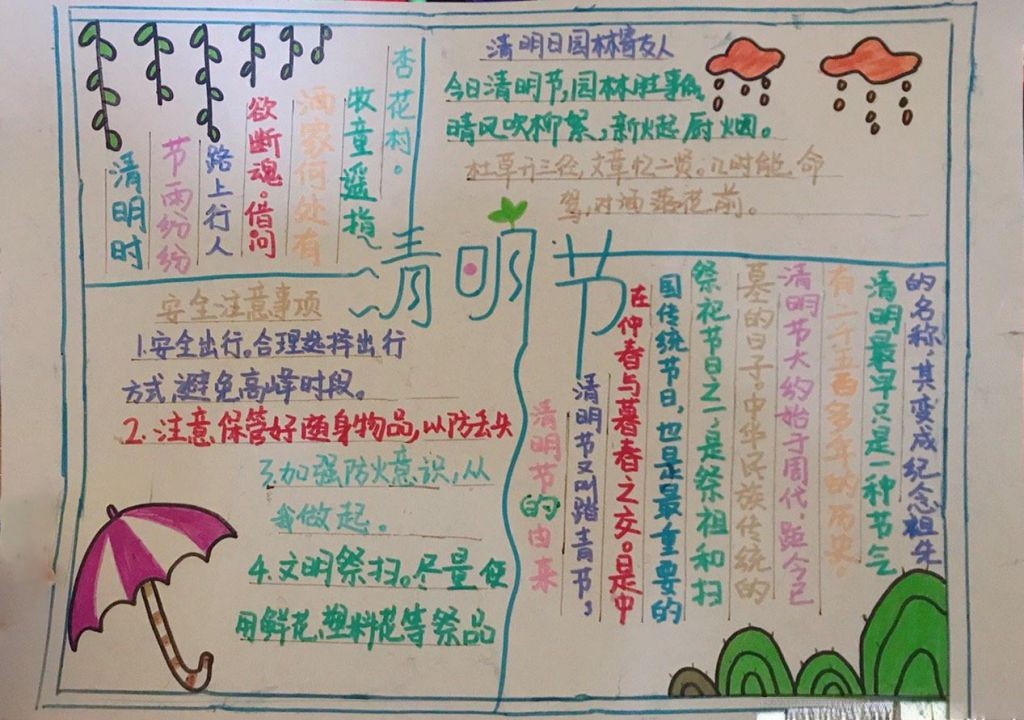 清明节
清明时
节雨纷纷
路上行人
欲断魂。借问
酒家何处有
牧童遥指
杏花村。
清明日园林寄友人
今日清明节,园林胜事偏
晴风吹柳絮,新火起厨烟。
杜草开三径,文章忆二贤。几时能命
驾,对酒落花前。
安全注意事项
1.安全出行。合理选择出行
方式,避免高峰时段。
2.注意保管好随身物品,以防丢失
3.加强防火意识,从
我做起。
4.文明祭扫。尽量使
用鲜花、塑料花等祭品
清明节的由来
清明节又叫踏青节,
在仲春与暮春之交。是中
国传统节日,也是最重要的
祭祀节日之一,是祭祖和扫
墓的日子。中华民族传统的
清明节大约始于周代,距今已
有二千五百多年的历史
清明最早只是一种节气
的名称,其变成纪念祖先